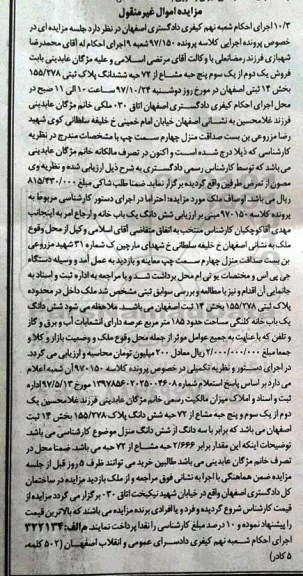 مزایده اموال غیر منقول
۱۰/۳ اجرای احکام شعبه نهم کیفری دادگستری اصفهان در نظر دارد جلسه مزایده ای در
خصوص پرونده اجرایی کلاسه پرونده ۹۷/۱۵۰ شعبه ۹ اجرای احکام له آقای محمدرضا
شهبازی فرزند رمضانعلی با وکالت آقای مرتضی اسلامی و علیه مژگان عابدینی بابت
فروش یک دوم از یک سوم پنج حبه مشاع از ۷۲ حبه ششدانگ پلاک ثبتی ۱۵۵/۲۷۸
بخش ۱۴ ثبتی اصفهان در مورخ روز دوشنبه ۹۷/۱۰/۲۴ ساعت ۱۰ الی ۱۱ صبح در
محل اجرای احکام کیفری دادگستری اصفهان اتاق ۰۳۰ ملکی خانم مژگان عابدینی
فرزند غلامحسین به نشانی اصفهان خیابان امام خمینی خ خلیفه سلطانی کوی شهید
رضا مزروعی بن بست صداقت منزل چهارم سمت چپ با مشخصات مندرج در نظریه
کارشناسی که ذیلا درج شده است و اکنون در تصرف مالکانه خانم مژگان عابدینی
می باشد که توسط کارشناس رسمی دادگستری به شرح ذیل ارزیابی شده و نظریه وی
مصون از تعرض طرفین واقع گردیده برگزار نماید ضمنا طلب شاکی مبلغ ۸۱۵/۴۳۰/۰۰۰
ریال می باشد. اوصاف ملک مورد مزایده: احتراما در اجرای دستور کارشناسی مربوط به
پرونده کلاسه ۹۷۰۱۵۰ مبنی بر ارزیابی شش دانگ یک باب خانه و ارجاع امر به اینجانب
مهدی آقاکوچکیان کارشناس منتخب به اتفاق متقاضی آقای اسلامی و کیل از محل وقوع
ملک به نشانی اصفهان خ خلیفه سلطانی خ شهدای مارچین ک شماره ۳۱ شهید مزروعی
بن بست صداقت منزل چهارم سمت چپ معاینه و بازدید به عمل آمد و وسیله دستگاه
جی پی اس و مختصات یو تی ام محل برداشت شد و با مراجعه به اداره ثبت و اسناد به
جانمایی آن اقدام و نیز با مطالعه و بررسی سوابق ثبتی مشخص شد ملک داخل در محدوده
پلاک ثبتی ۱۵۵/۲۷۸ بخش ۱۴ ثبت اصفهان می باشد. ملاحظه می شود شش دانگ
یک باب خانه کلنگی مساحت حدود ۱۸۵ متر مربع عرصه دارای انشعابات آب و برق و گاز
و تلفن که با عنایت به جمیع عوامل موثر از جمله محل وقوع ملک و وضعیت بازار و کلا و
جمعا مبلغ ۲/۰۰۰/۰۰۰/۰۰۰ ریال معادل ۲۰۰ میلیون تومان محاسبه و ارزیابی می گردد.
در اجرای دستور و نظریه تکمیلی در خصوص پرونده کلاسه ۹۷۰۱۵۰ آن شعبه اعلام
می دارد بر اساس پاسخ استعلام شماره ۱۳۹۷۸۵۶۰۲۰۲۵۰۰۴۶۰۸ مورخ ۹۷/۵/۱۳ اداره
ثبت و اسناد و املاک میزان مالکیت رسمی خانم مژگان عابدینی فرزند غلامحسین یک
دوم از یک سوم و پنج حبه مشاع از ۷۲ حبه شش دانگ پلاک ۱۵۵/۲۷۸ بخش ۱۴ ثبت
اصفهان می باشد که برابر با سه دانگ از شش دانگ منزل موضوع کارشناسی می باشد.
توضیحات اینکه این مقدار برابر ۲/۶۶۶ حبه مشاع از ۷۲ حبه می باشد. ضمنا محل در
تصرف خانم مژگان عابدینی می باشد طالبین خرید می توانند ظرف ۵ روز قبل از جلسه
مزایده ضمن هماهنگی با اجرا به نشانی فوق مراجعه و از ملک بازدید مزایده در ساختمان
کل دادگستری اصفهان واقع در خیابان شهید نیکبخت اتاق ۰۳۰ برگزار می گردد مزایده از
قیمت کارشناس شروع گردیده و فرد و یا افرادی برنده مزایده می باشند که بالاترین قیمت
را پیشنهاد نموده و ۱۰ درصد مبلغ کارشناسی را نقدا پرداخت نمایند. م الف: ۳۲۲۱۳۴
اجرای احکام شعبه نهم کیفری دادسرای عمومی و انقلاب اصفهان (۵۰۲ کلمه،
۵ کادر)